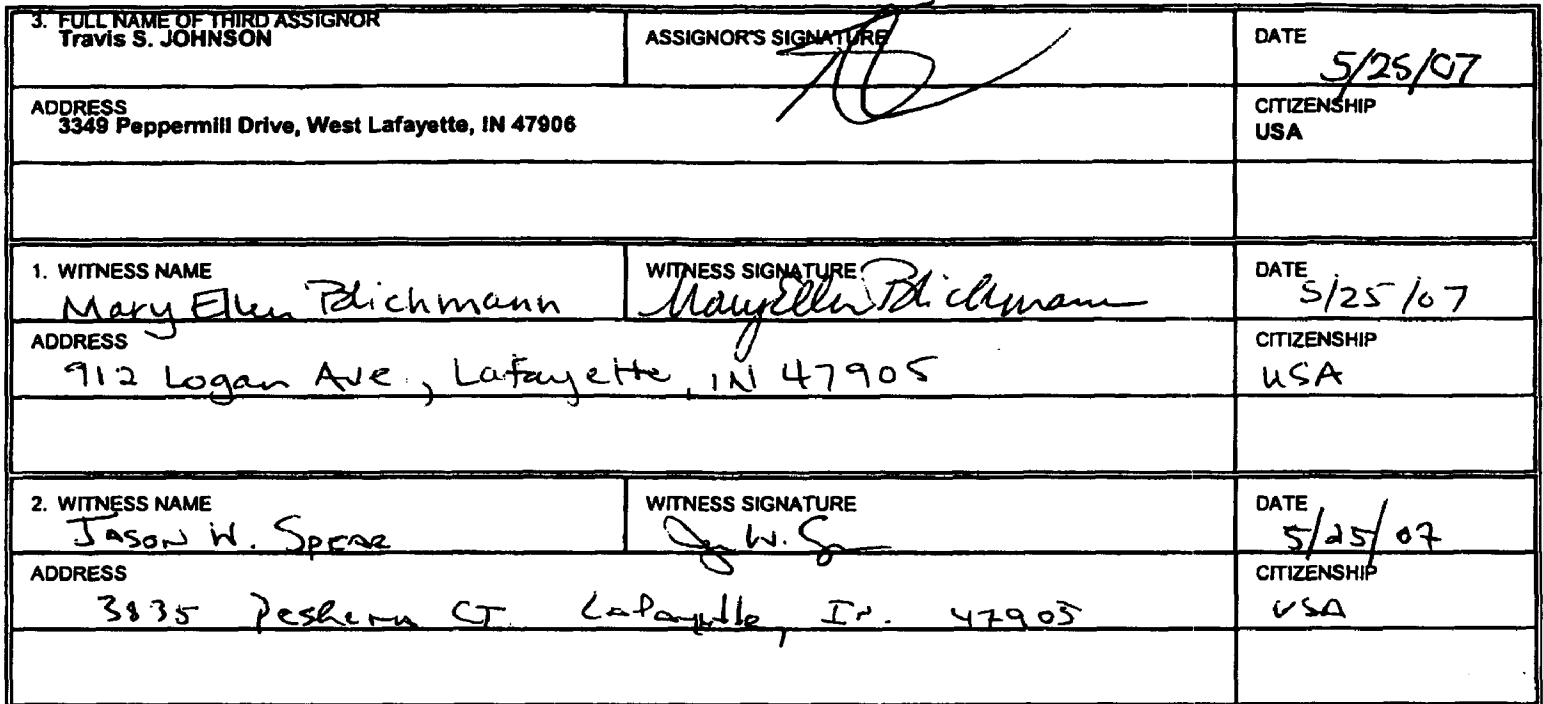 3. FULL NAME OF THIRD ASSIGNOR
Travis S. JOHNSON
ASSIGNOR'S SIGNATURE
DATE
5/25/07
ADDRESS
3349 Peppermill Drive, West Lafayette, IN 47906
CITIZENSHIP
USA
1. WITNESS NAME
Mary Ellen Blichmann
WITNESS SIGNATURE
Mary Ellen Blichmann
DATE
5/25/07
ADDRESS
912 Logan Ave., Lafayette, IN 47905
CITIZENSHIP
USA
2. WITNESS NAME
JASON W. SPEAR
WITNESS SIGNATURE
DATE
5/25/07
ADDRESS
3835 CT Lafayette, In. 47905
CITIZENSHIP
USA